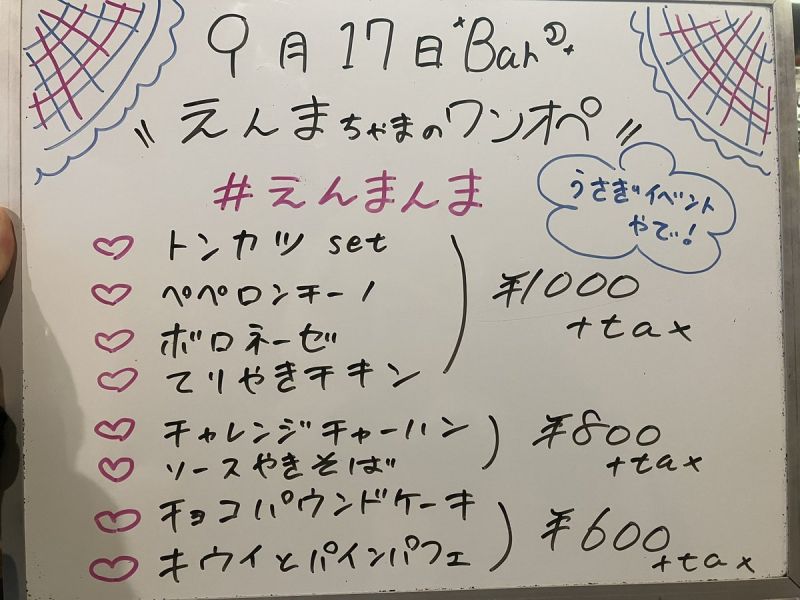 9月17日 Bar
えんまちゃまのワンオペ
#えんまんま
うさぎイベント
やで!
トンカツ set
ペペロンチーノ
ボロネーゼ
てりやきチキン
¥1000
+tax
チャレンジチャーハン
ソースやきそば
¥800
+tax
チョコパウンドケーキ
キウイとパインパフェ
¥600
+tax